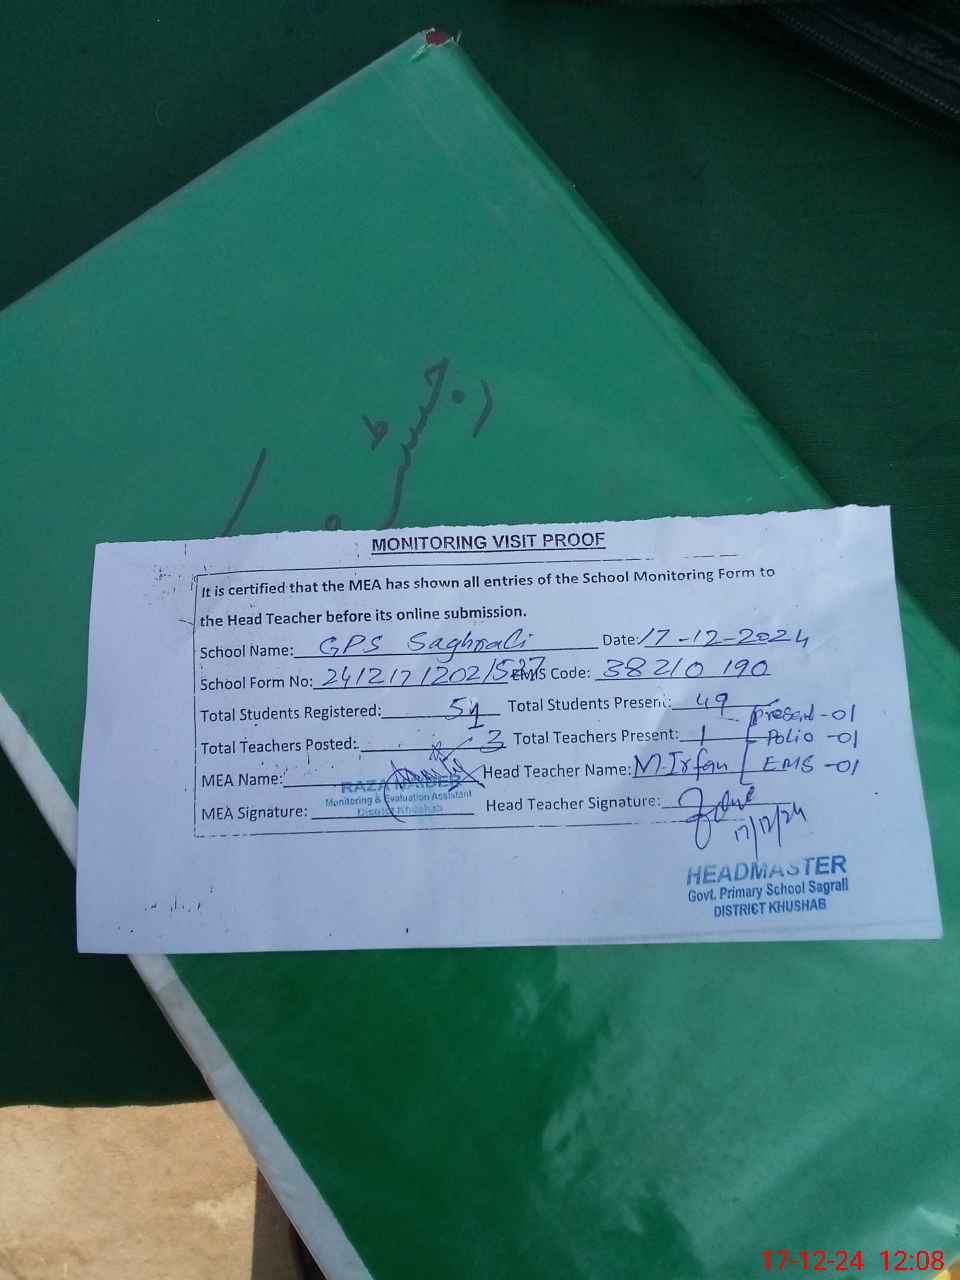 رجسٹر
MONITORING VISIT PROOF
It is certified that the MEA has shown all entries of the School Monitoring Form to
the Head Teacher before its online submission.
School Name: GPS Saghrali Date: 17-12-2024
School Form No: 2412171202/527 EMIS Code: 38210190
Total Students Registered: 51 Total Students Present: 49
Present -01
Total Teachers Posted: 3 Total Teachers Present: 1
Polio -01
MEA Name: Head Teacher Name: M.Irfan
EMS -01
RAZA HAIDER
Monitoring & Evaluation Assistant
District Khushab
MEA Signature: Head Teacher Signature:
17/12/24
HEADMASTER
Govt. Primary School Sagrall
DISTRICT KHUSHAB
17-12-24 12:08